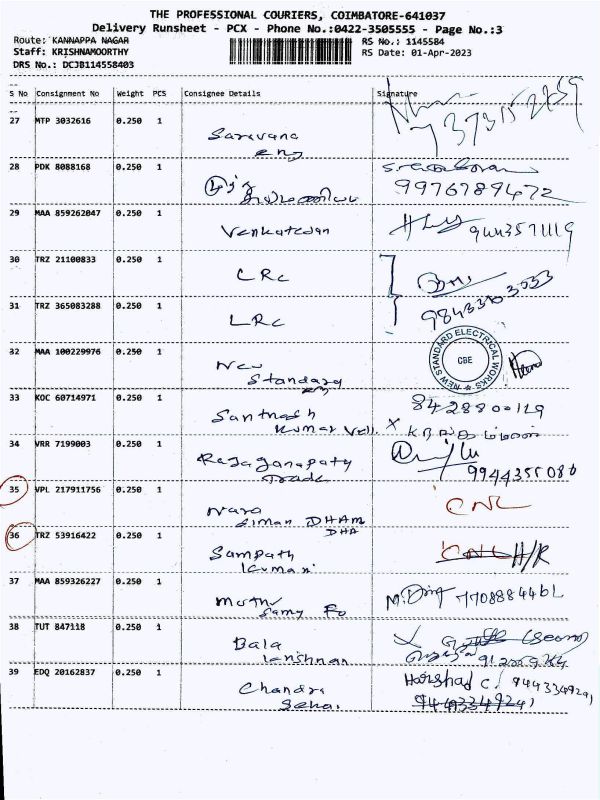 THE PROFESSIONAL COURIERS, COIMBATORE-641037
Delivery Runsheet - PCX - Phone No.:0422-3505555 - Page No.:3
Route: KANNAPPA NAGAR RS No.: 1145584
Staff: KRISHNAMOORTHY RS Date: 01-Apr-2023
DRS No.: DCJB114558403
S No Consignment No Weight PCS Consignee Details Signature
27 MTP 3032616 0.250 1
Saravana
eng
28 PDK 8088168 0.250 1
9976789472
29 MAA 859262047 0.250 1
Venkatesan
30 TRZ 21100833 0.250 1
LRC
31 TRZ 365083288 0.250 1
LRC
9843303033
32 MAA 100229976 0.250 1
New
Standard
NEW STANDARD ELECTRICAL WORKS
CBE
33 KOC 60714971 0.250 1
Santhosh
Kumar
8428800119
34 VRR 7199003 0.250 1
Rajaganapaty
Trade
9944355086
35 VPL 217911756 0.250 1
Nara
Siman DHAM
DHA
CNL
36 TRZ 53916422 0.250 1
Sampath
Kumari
CNL H/R
37 MAA 859326227 0.250 1
Muthu
Samy
38 TUT 847118 0.250 1
Bala
Krishnan
39 EDQ 20162837 0.250 1
Chandra
Sekar
Harshad C. 9443349291
9444334929